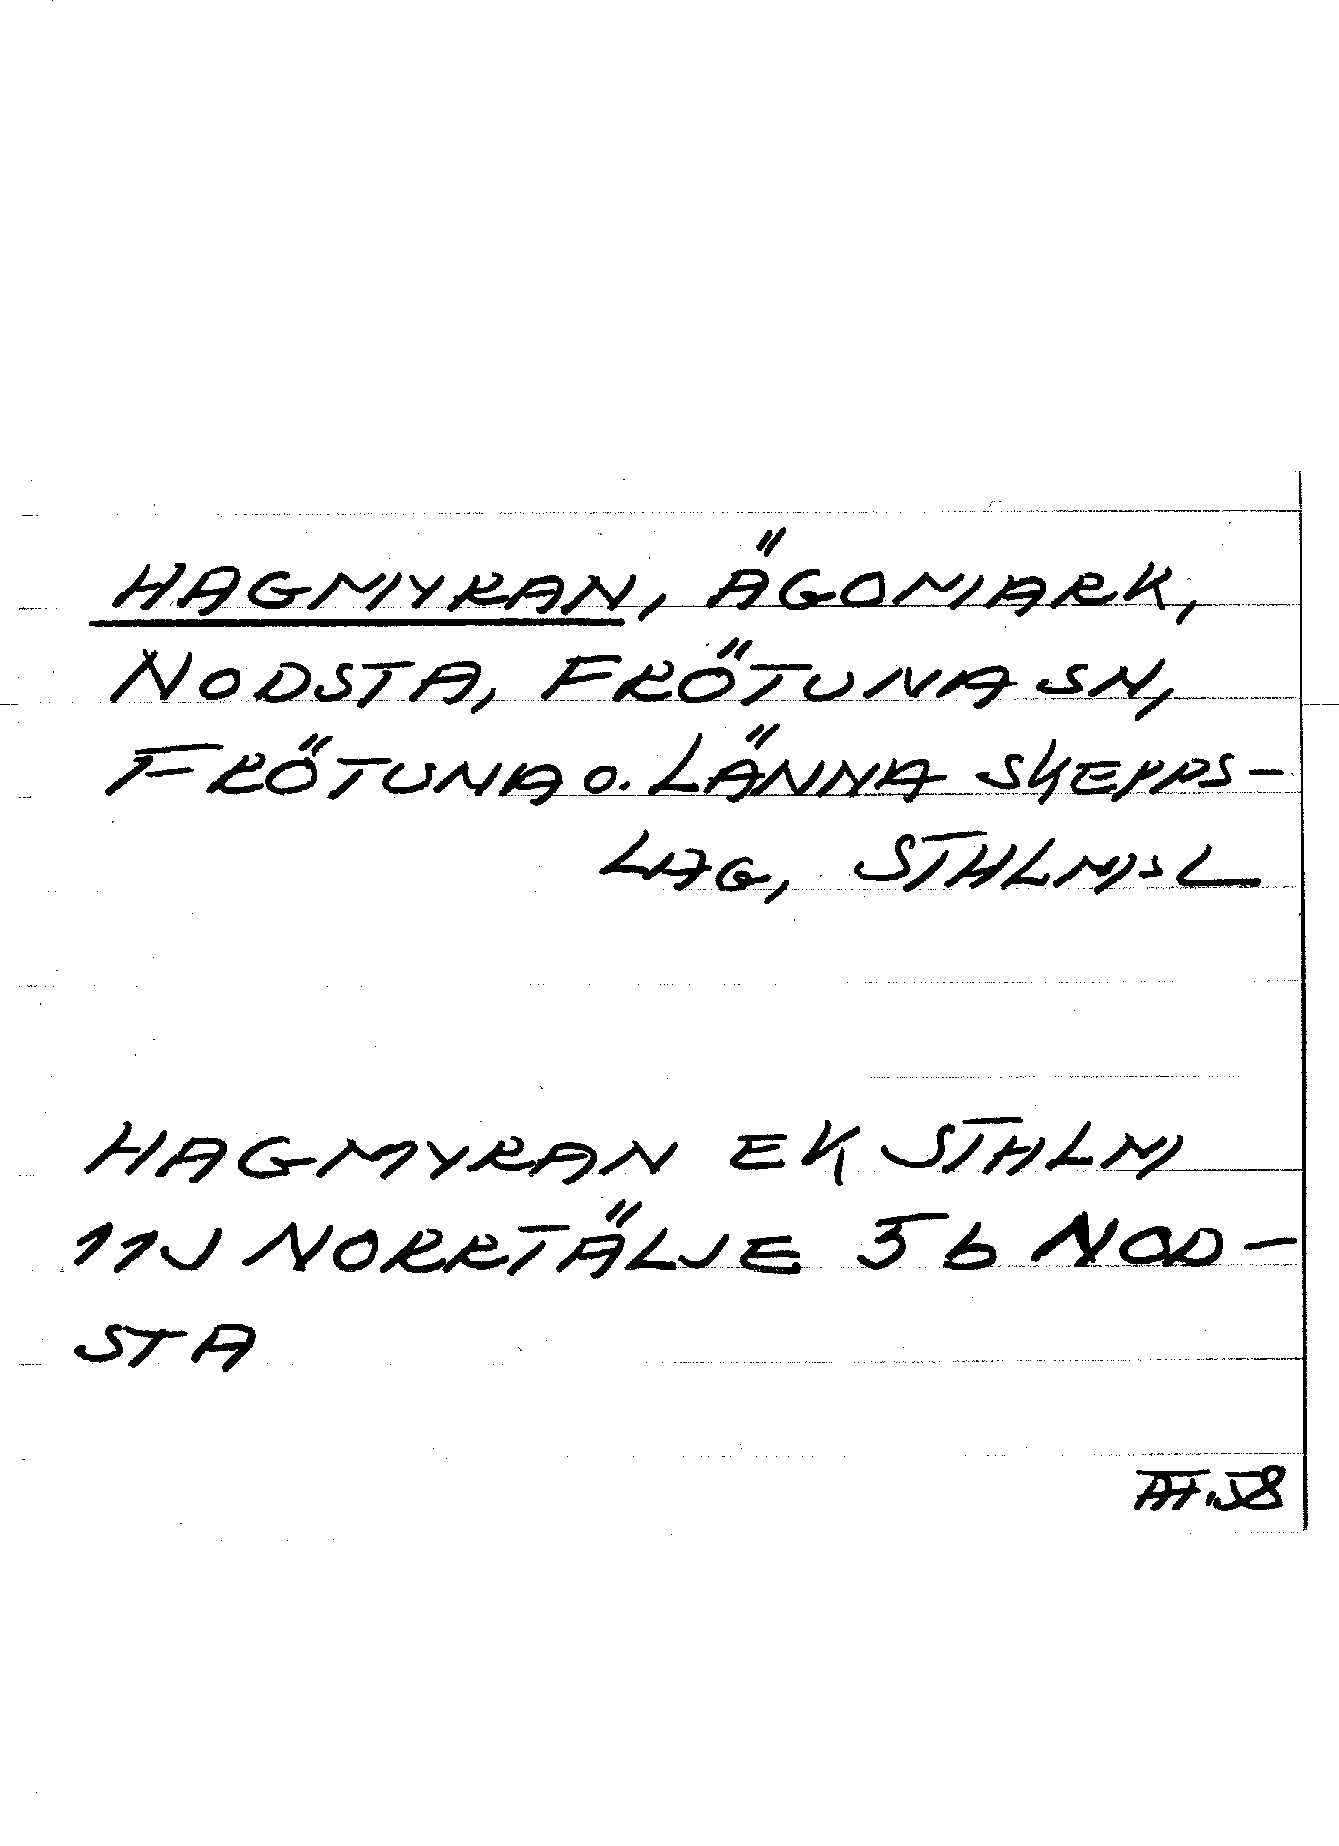 HAGMYRAN, ÄGOMARK,
NODSTA, FRÖTUNA SN,
FRÖTUNA O. LÄNNA SKEPPS-
LAG, STHLMSL
HAGMYRAN EK STHLM
11J NORRTÄLJE 5b NOD-
STA